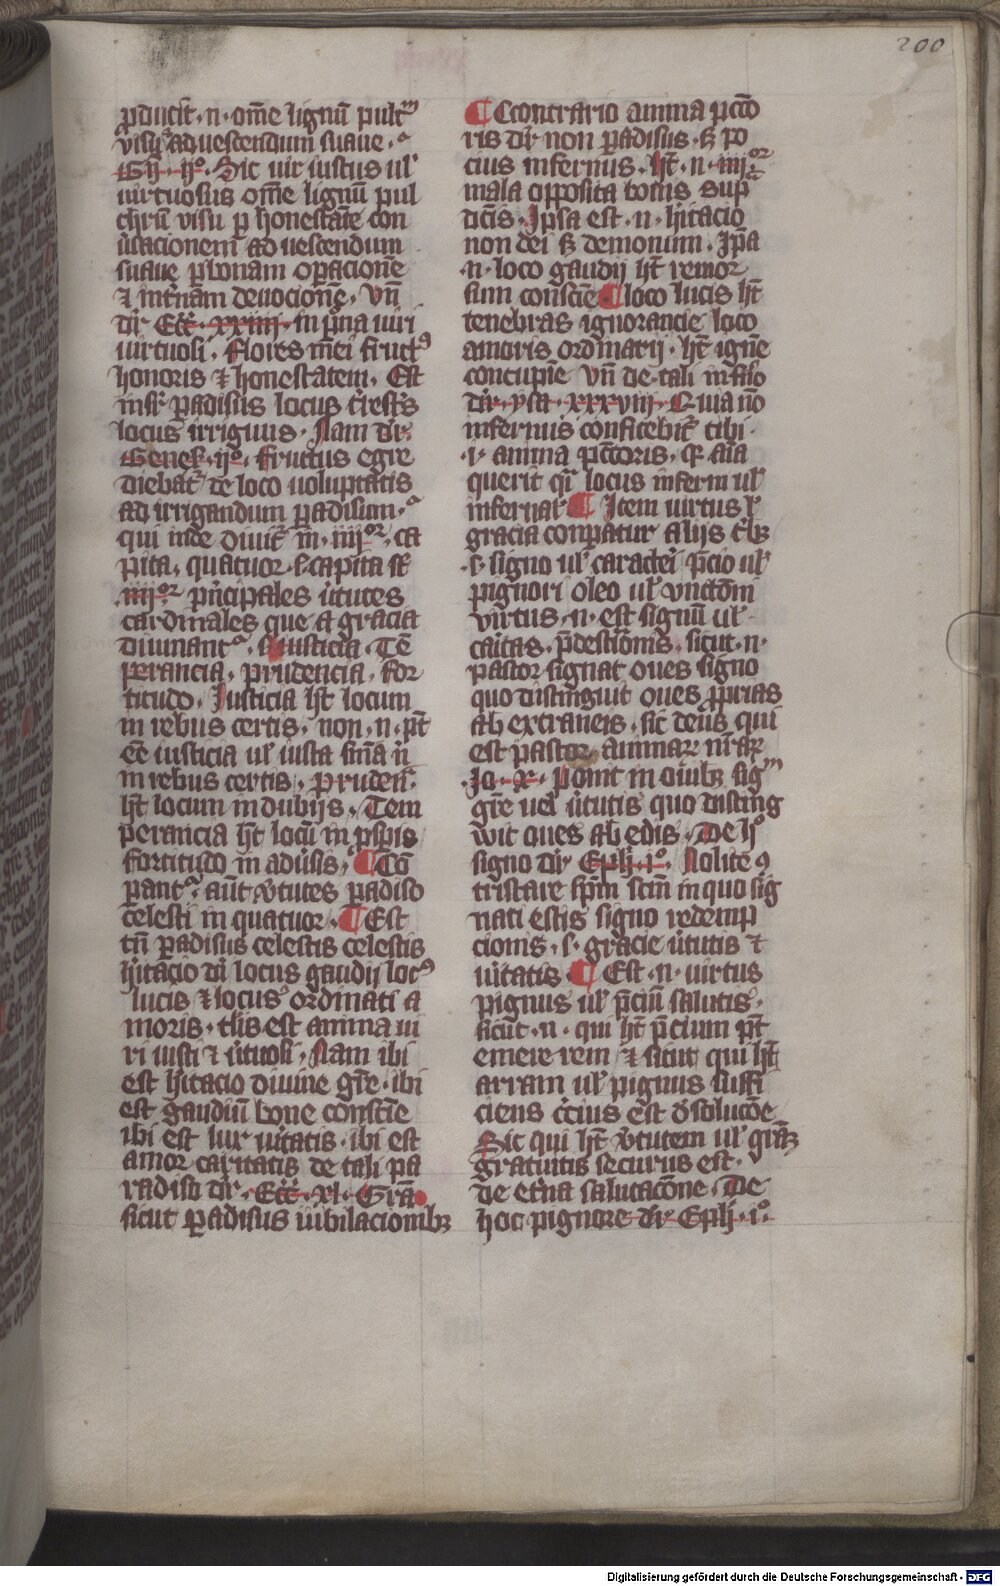 200
ꝓduc̄it .n. om̄e lignū pulcrᵐ
visu ad uescendum suaue.
Gn̄ .ijᵒ. Sic uir iustus ul̓
uirtuosus om̄e lignū pul
chrū visu ꝑ honestatē con
ūsacionem ad uescendum
suaue ꝑ bonam oꝑacionē
⁊ int̓nam deuocionē. Vn̄
dr̄ Ecc̄i. xxiiii. in ꝑsona uiri
uirtuosi. flores mei fructꝰ
honoris ⁊ honestatem. Est
insr̄ ꝑadisus locus t̓rest̓s
locus irriguus. Nam dr̄.
Genes̄. ijᵒ. fruct̓us egre
diebat̓ de loco uoluptatis
ad irrigandum ꝑadisum.
qui inde diuit̓ in .iiijᵒʳ. ca
pita, quatuor capita st̄
.iiijᵒʳ. pn̄cipales ūtutes
cardinales que a gracia
diuinant̓. s. iusticia. Tē
perancia, prudencia, for
titudo. Iusticia ht̄ locum
in rebus certis. non .n. pt̄
eē iusticia ul̓ iusta sn̄ia n̄
in rebus certis. pruden̄.
ht̄ locum in dubijs. Tem
perancia ht̄ locū in ꝓspis
fortitudo in adūsis. ¶ Cō
pant̓ aūt v̄tutes ꝑadiso
celesti in quatuor. ¶ Est
tn̄ ꝑadisus celestis celestis
h̓itacio dī locus gaudij locꝰ
lucis ⁊ locus ordinati a
moris. tl̓is est anima ui
ri iusti ⁊ ūtuosi. Nam ibi
est h̓itacio diuine gr̄e. ibi
est gaudiū bone consc̄ie
ibi est lux ūitatis. ibi est
amor caritatis de tali pa
radiso dr̄. Ecc̄i. xl. Gr̄a
sicut ꝑadisus iubilacionibꝫ
¶ Econtrario anima pcc̄o
ris dr̄ non ꝑadisus. sꝫ po
cius infernus. Ht̄ .n. iiijᵒʳ
mala opposita bonis sup̄
dc̄is. Ipsa est .n. h̓itacio
non dei sꝫ demonum. Ip̄a
.n. loco gaudij ht̄ remor
sum consc̄ie ¶ loco lucis ht̄
tenebras ignorancie loco
amoris ordinarij. ht̄ ignē
concupīe vn̄ de tali inf̓no
dr̄. ysa. xxxviij. Quia nō
infernus confitebit̓ tibi
.i. anima pcc̄oris, ꝙ aīa
querit qī locus inferni ul̓
infernal̓ ¶ Item virtus ul̓
gracia conꝑatur alijs t̓bꝫ
.s. signo ul̓ caracteri p̄cio ul̓
pignori oleo ul̓ vnctōni
virtus .n. est signū ul̓
caītas. p̄destiōnis. sicut .n.
pastor signat oues signo
quo distinguit oues ꝓprias
ab extraneis. sic deus qui
est pastor animar̄ nr̄ar̄
Jo. x. Ponit in ouibꝫ sigᵐ
gr̄e uel ūtutis quo disting
wit oues ab edis. De hᵒ
signo dr̄ Eph̄. iᵒ. Nolite ꝯ
tristare spm̄ scm̄ in quo sig
nati estis signo redemp
cionis .s. gracie ūtutis ⁊
ūitatis ¶ Est .n. uirtus
pignus ul̓ p̄ciū salutis.
sicut .n. qui ht̄ p̄cium pt̄
emere rem ⁊ sicut qui ht̄
arram ul̓ pignus suffi
ciens c̓cius est d̓ solucōe
Sic qui ht̄ v̄tutem ul̓ gr̄aꝫ
gratuitis securus est.
de et̓na saluacōne. De
hoc pignore dr̄ Eph̄. iᵒ.
Digitalisierung gefördert durch die Deutsche Forschungsgemeinschaft - DFG